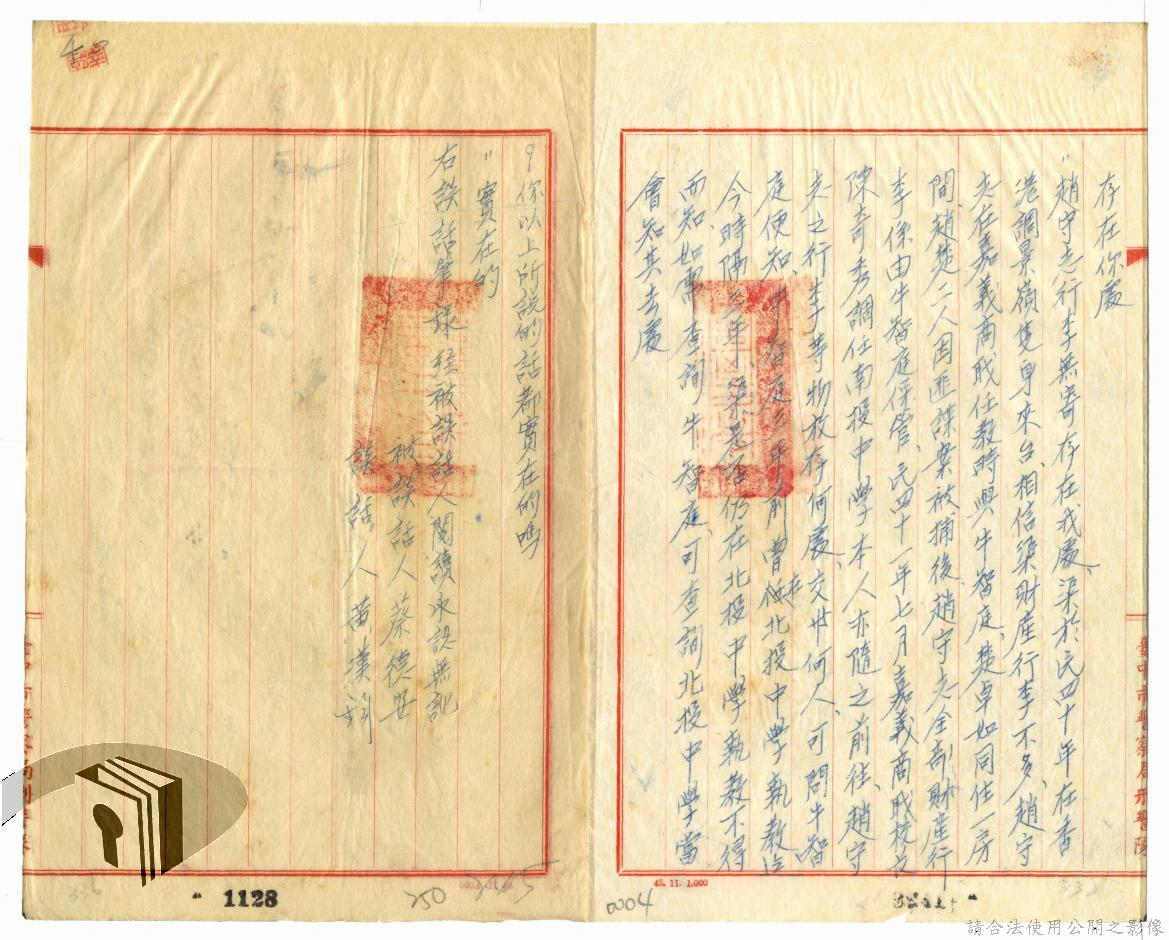 存在你處
〃趙守志行李無寄存在我處、渠於民四十年在香
港調景嶺隻身來台、相信渠財產行李不多、趙守
志在嘉義商職任教時與牛智庭、楚卓如同住一房
間、趙楚二人因匪諜案被捕後、趙守志全部財產行
李係由牛智庭保管、民四十一年七月嘉義商職校長
陳奇秀調任南投中學本人亦隨之前往、趙守
志之行李等物放存何處、交廿何人、可問牛智
庭便知、牛智庭前曾在北投中學執教迄
今時隔多年、渠是否仍在北投中學執教不得
而知、如需查詢牛智庭、可查詢北投中學當
會知其去處
臺中市警察局刑警隊
45. 11. 1,000
0004
332
你以上所說的話都實在的嗎
〃實在的
右談話筆錄經被談話人閱讀承認無訛
被談話人 蔡德
談話人 黃漢
1128
250
2265
336
請合法使用公開之影像